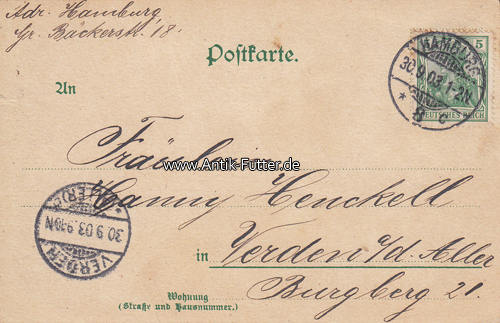 Adr. Hamburg,
Gr. Bäckerstr. 18.
Postkarte.
HAMBURG
30.9.03.1-2N
* 8 c
5
DEUTSCHES REICH
An
Fräulein
www.Antik-Futter.de
Hanny Henckell
in Verden a/d. Aller
Burgberg 21.
Wohnung
(Straße und Hausnummer.)
VERDEN
30.9.03.9-10N
(ALLER)